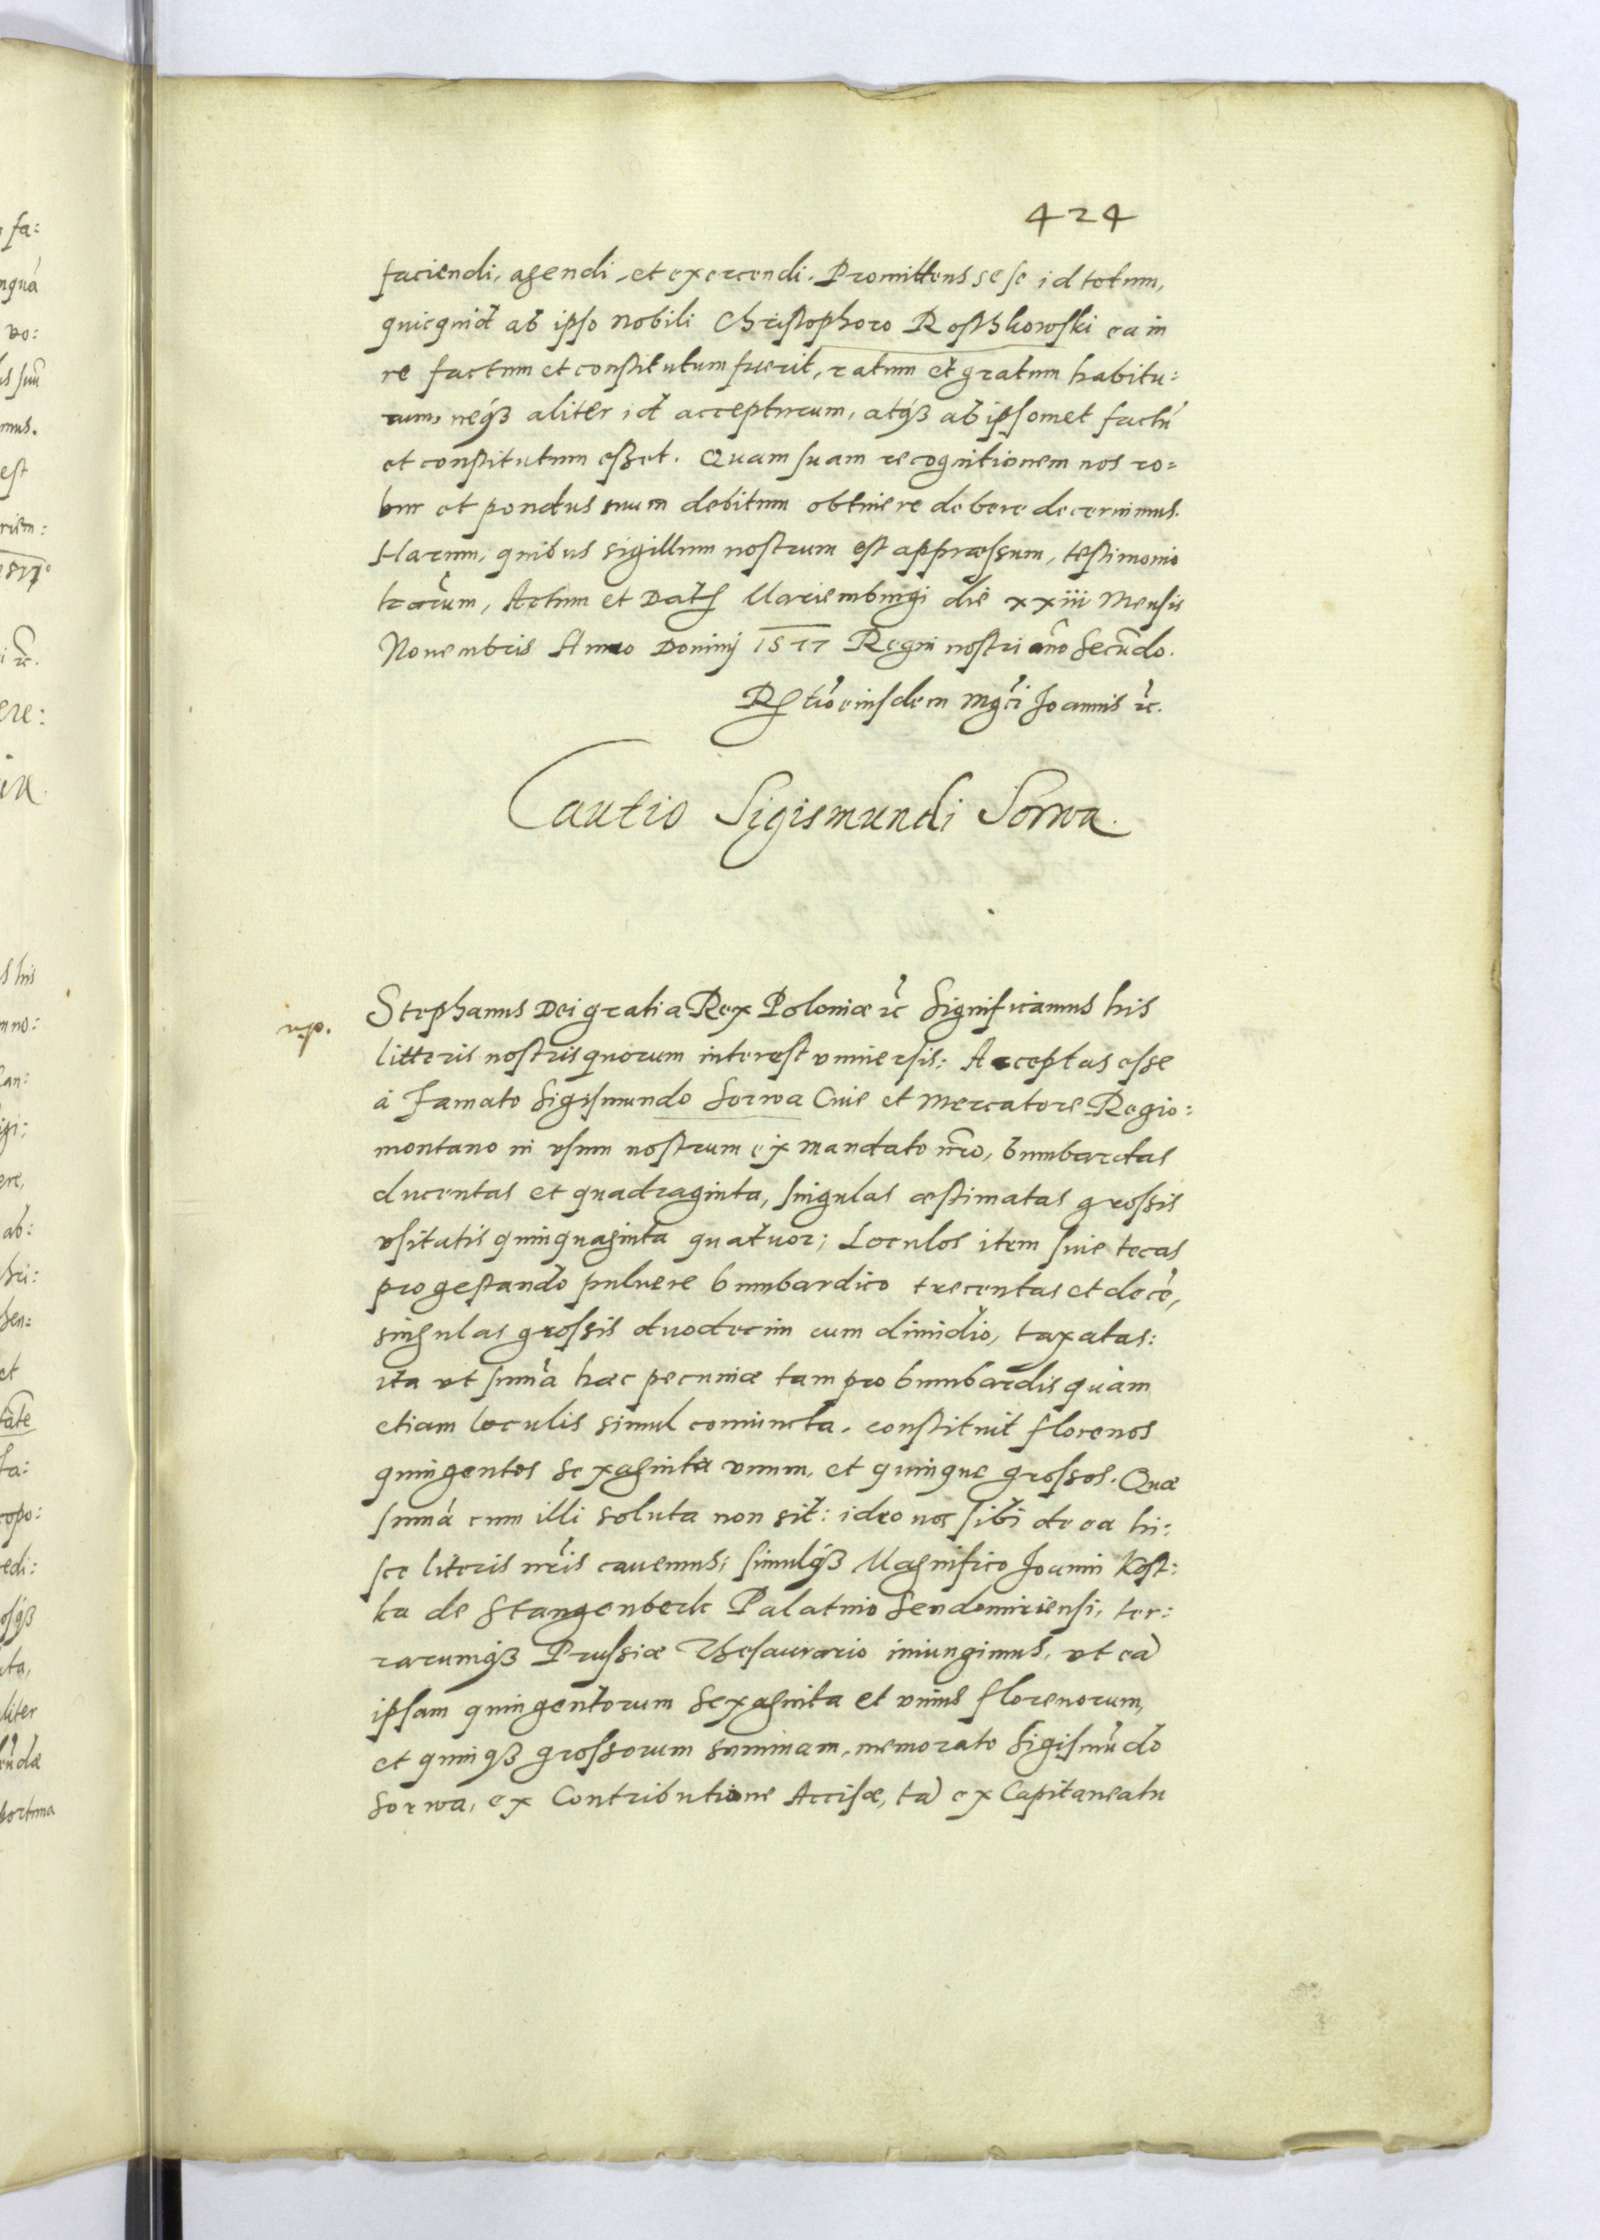 424
faciendi, agendi, et exercendi. Promittens sese id totum,
quicquid ab ipso Nobili Christophoro Rosthkowski ea in
re factum et constitutum fuerit, ratum et gratum habitu:
rum, neqз aliter id accepturum, atqз ab ipsomet factū
et constitutum esset. Quam suam recognitionem nos ro=
bur et pondus suum debitum obtinere debere decernimus.
Harum, quibus sigillum nostrum est appressum, testimonio
lrarum, Actum et Dat Mariemburgi die xxiii Mensis
Nouembris Anno Dominj 1577 Regni nostri āno Secūdo.
R tio eiusdem Mgci Joannis rc.
Cautio Sigismundi Sorwa.
Stephanus Dei gratia Rex Poloniæ rc Significamus his
litteris nostris quorum interest vniuersis: Acceptas esse
à Famato Sigismundo Sorwa Ciue et Mercatore Regio:
montano in vsum nostrum ex mandato nro, bumbardas
ducentas et quadraginta, singulas æstimatas grossis
vsitatis quinquaginta quatuor; Loculos item siue tecas
pro gestando puluere bumbardico trecentas et decē,
singulas grossis duodecim cum dimidio, taxatas:
ita vt summa hæc pecuniæ tam pro bumbardis quàm
etiam loculis simul coniuncta, constituit florenos
quingentos sexaginta vnum, et quinque grossos. Quæ
summa cum illi soluta non sit: ideo nos sibi de ea hi:
sce literis nris cauemus; simulqз Magnifico Joanni Kost:
ka de Stangenberk Palatino Sendomiriensi, ter:
rarumqз Prussiæ Thesaurario iniungimus, vt eā
ipsam quingentorum sexaginta et vnius florenorum,
et quinqз grossorum summam, memorato Sigismūdo
Sorwa, ex Contributione Accisæ, tā ex Capitaneatu
fa:
nquā
vo:
mus.
est
riem:
ere:
s his
mno:
ere,
ab:
et
copo:
edi:
liter